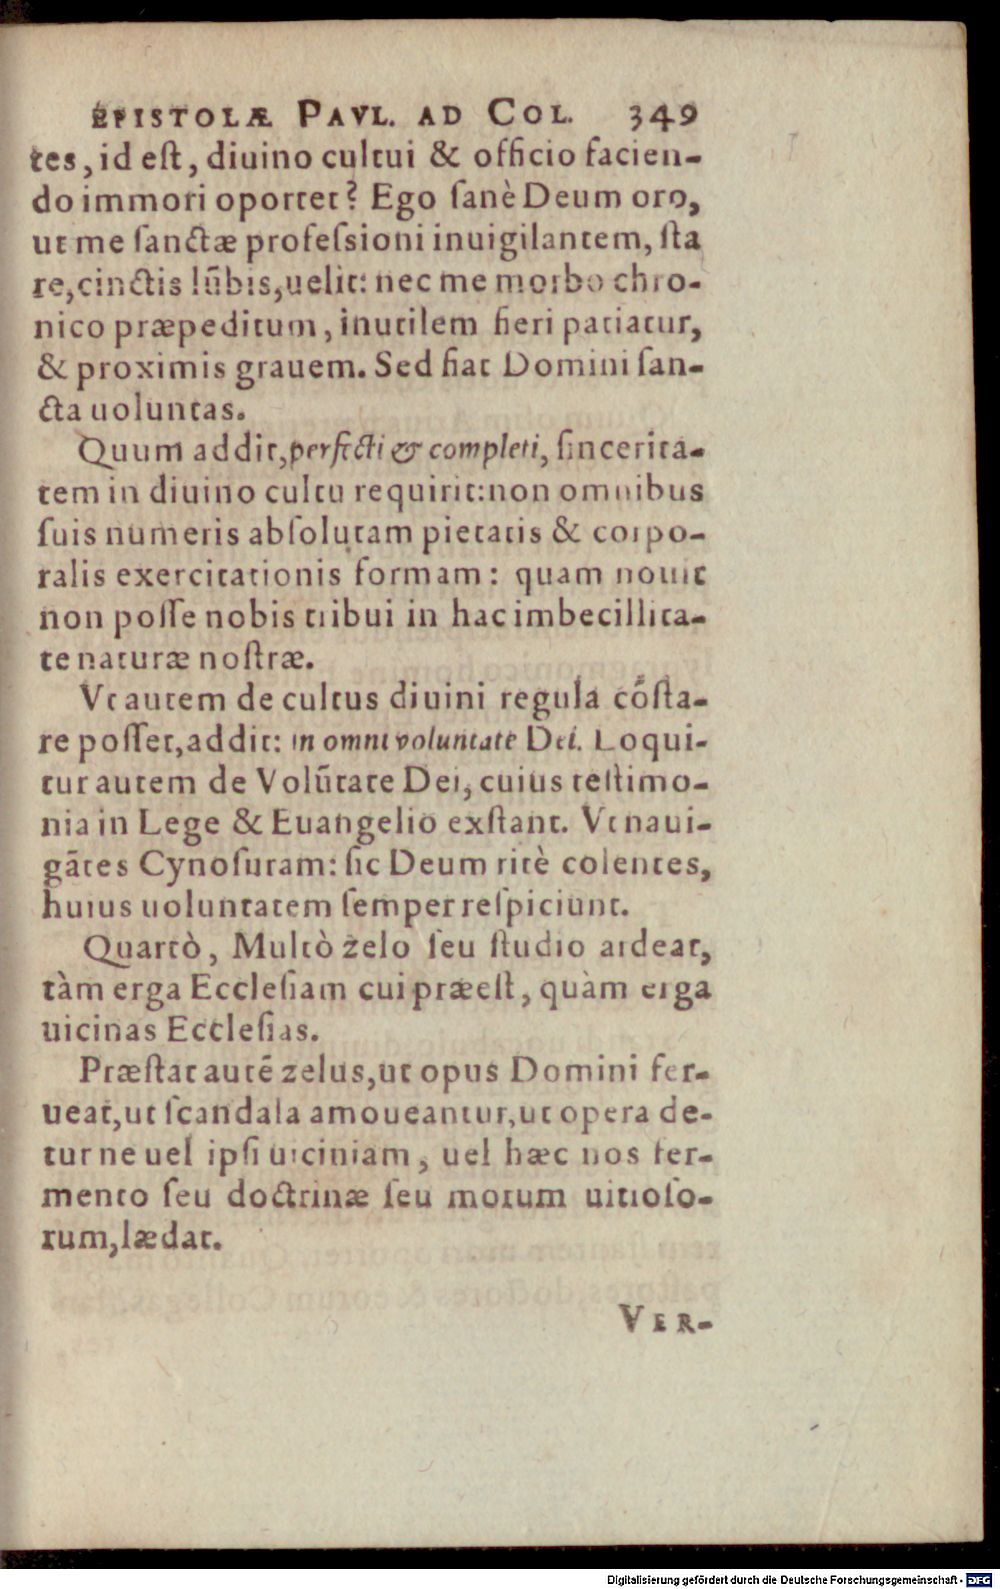 EPISTOLÆ PAVL. AD COL. 349
tes, id eſt, diuino cultui & officio facien-
do immori oportet? Ego ſanè Deum oro,
ut me ſanctæ profeſsioni inuigilantem, ſta
re, cinctis lūbis, uelit: nec me morbo chro-
nico præpeditum, inutilem fieri patiatur,
& proximis grauem. Sed fiat Domini ſan-
cta uoluntas.
Quum addit, perfecti & completi, ſincerita-
tem in diuino cultu requirit: non omnibus
ſuis numeris abſolutam pietatis & corpo-
ralis exercitationis formam: quam nouit
non poſſe nobis tribui in hac imbecillita-
te naturæ noſtræ.
Vt autem de cultus diuini regula cōſta-
re poſſet, addit: in omni voluntate Dei. Loqui-
tur autem de Volūtate Dei, cuius teſtimo-
nia in Lege & Euangelio exſtant. Vt naui-
gātes Cynoſuram: ſic Deum ritè colentes,
huius uoluntatem ſemper reſpiciunt.
Quartò, Multò zelo ſeu ſtudio ardeat,
tàm erga Eccleſiam cui præeſt, quàm erga
uicinas Eccleſias.
Præſtat autē zelus, ut opus Domini fer-
ueat, ut ſcandala amoueantur, ut opera de-
tur ne uel ipſi uiciniam, uel hæc nos fer-
mento ſeu doctrinæ ſeu morum uitioſo-
rum, lædat.
VER-
Digitalisierung gefördert durch die Deutsche Forschungsgemeinschaft - DFG